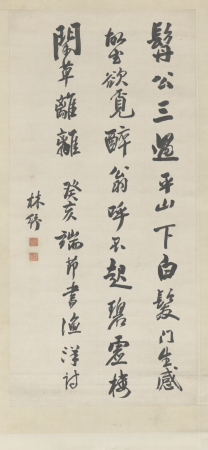 髯公三過平山下白髮門生感
故知欲覓醉翁呼不起碧虛樓
閣草離離 癸亥端節書漁洋詩
林紓